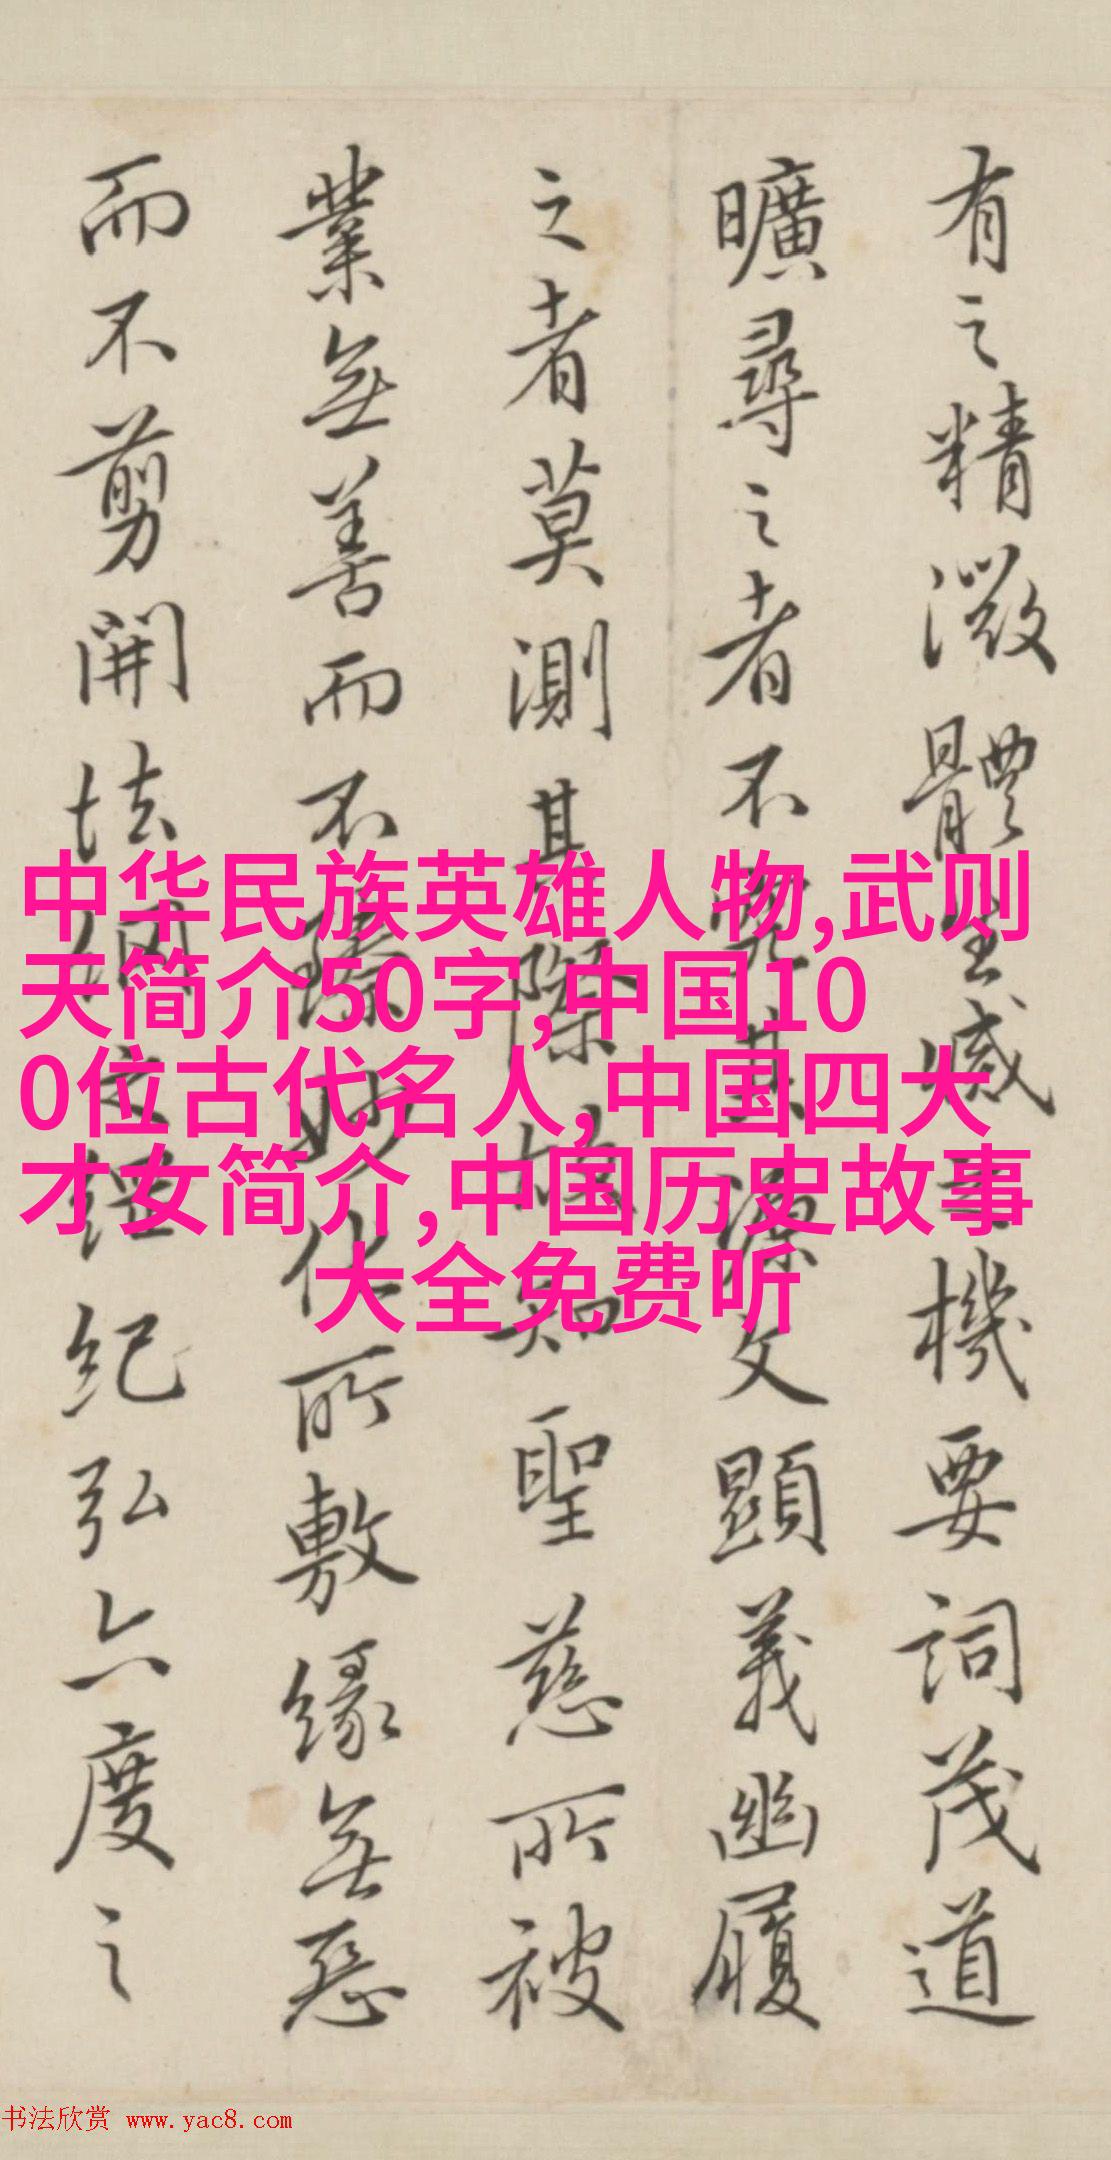 有之精微體生滅之機要詞茂道
曠尋之者不究其源文顯義幽履
之者莫測其際故知聖慈所被
業無善而不臻妙化所敷緣無惡
而不剪開法網之綱紀弘六度之
中华民族英雄人物,武则
天简介50字,中国10
0位古代名人,中国四大
才女简介,中国历史故事
大全免费听
书法欣赏 www.yac8.com